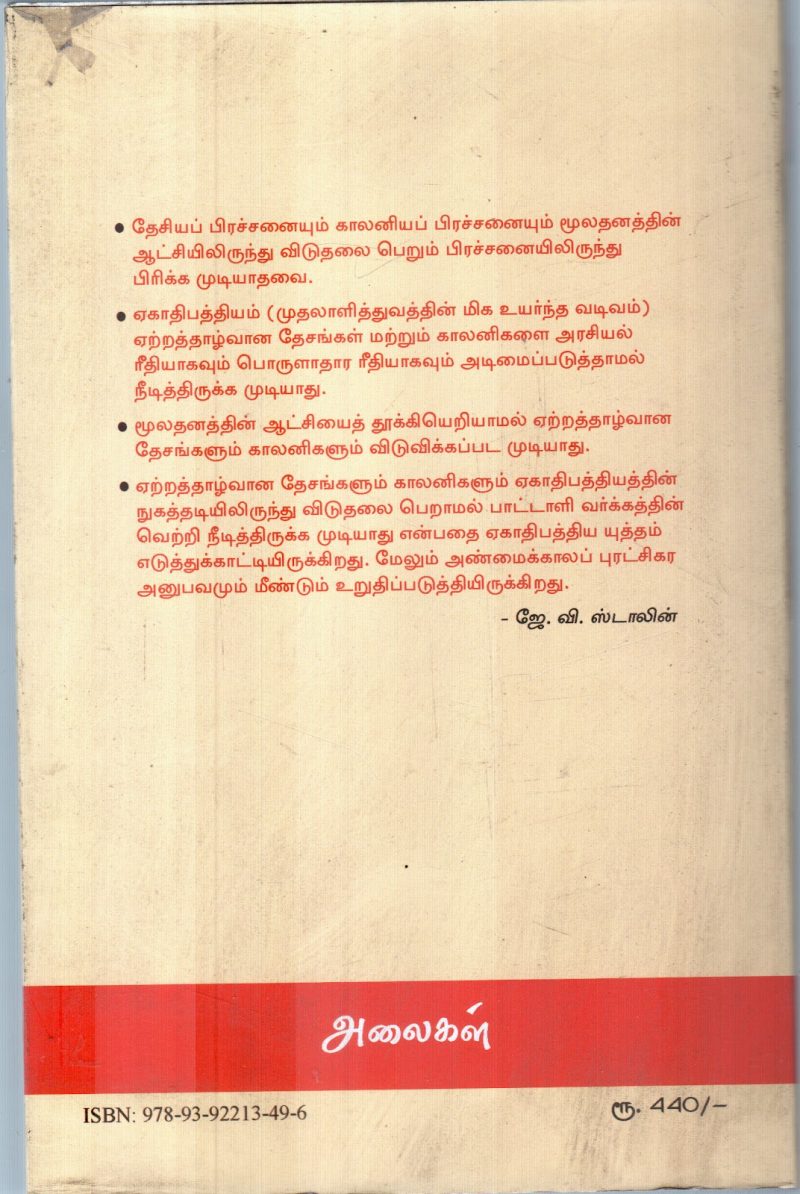 • தேசியப் பிரச்சனையும் காலனியப் பிரச்சனையும் மூலதனத்தின்
ஆட்சியிலிருந்து விடுதலை பெறும் பிரச்சனையிலிருந்து
பிரிக்க முடியாதவை.
• ஏகாதிபத்தியம் (முதலாளித்துவத்தின் மிக உயர்ந்த வடிவம்)
ஏற்றத்தாழ்வான தேசங்கள் மற்றும் காலனிகளை அரசியல்
ரீதியாகவும் பொருளாதார ரீதியாகவும் அடிமைப்படுத்தாமல்
நீடித்திருக்க முடியாது.
• மூலதனத்தின் ஆட்சியைத் தூக்கியெறியாமல் ஏற்றத்தாழ்வான
தேசங்களும் காலனிகளும் விடுவிக்கப்பட முடியாது.
• ஏற்றத்தாழ்வான தேசங்களும் காலனிகளும் ஏகாதிபத்தியத்தின்
நுகத்தடியிலிருந்து விடுதலை பெறாமல் பாட்டாளி வர்க்கத்தின்
வெற்றி நீடித்திருக்க முடியாது என்பதை ஏகாதிபத்திய யுத்தம்
எடுத்துக்காட்டியிருக்கிறது. மேலும் அண்மைக்காலப் புரட்சிகர
அனுபவமும் மீண்டும் உறுதிப்படுத்தியிருக்கிறது.
- ஜே. வி. ஸ்டாலின்
அலைகள்
ISBN: 978-93-92213-49-6
ரூ. 440/-